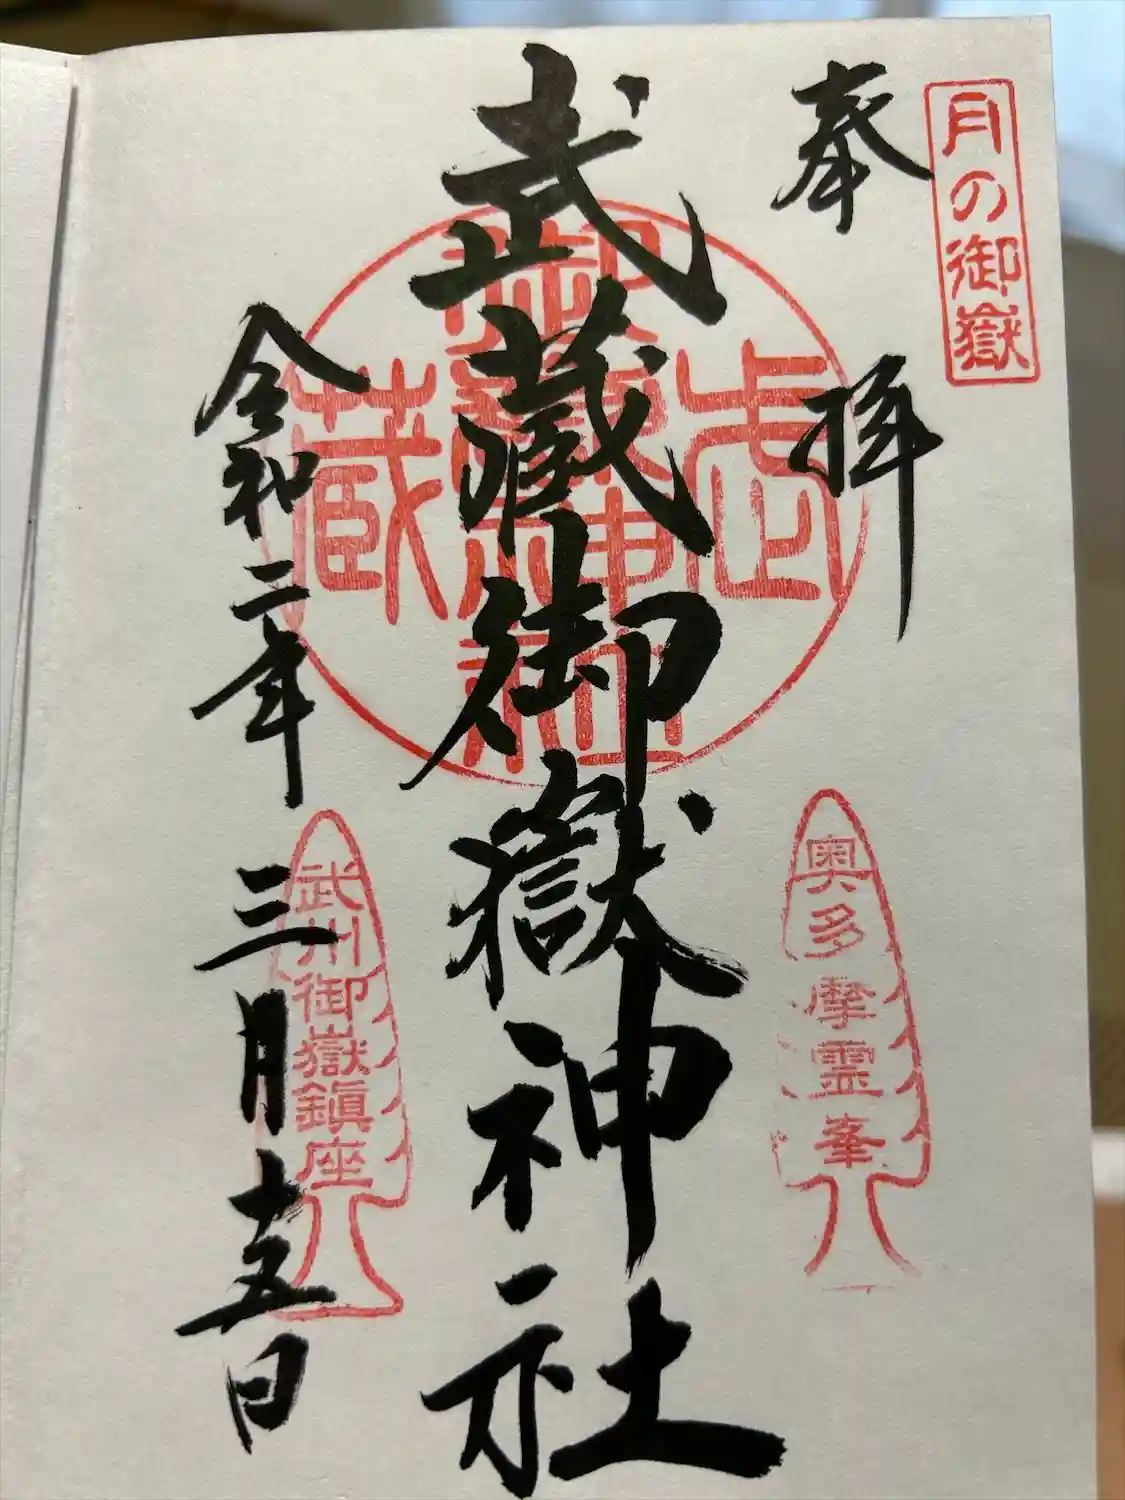 月の御嶽
奉拝
奥多摩霊峯
武蔵御嶽神社
武蔵御嶽神社
武州御嶽鎮座
令和二年三月十五日